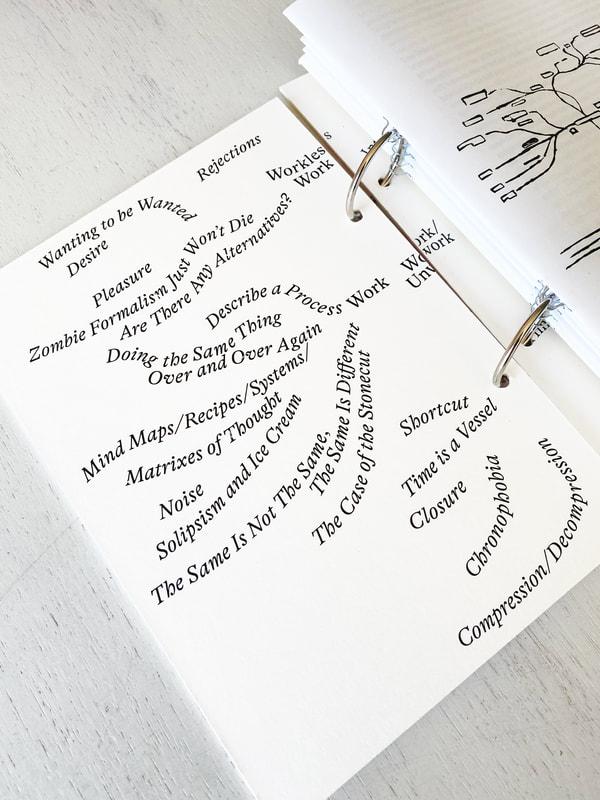 Rejections
Workless
Work
Wanting to be Wanted
Desire
Pleasure
Zombie Formalism Just Won't Die
Are There Any Alternatives?
Describe a Process
Work
Doing the Same Thing
Over and Over Again
Mind Maps/Recipes/Systems/
Matrixes of Thought
Noise
Solipsism and Ice Cream
The Same Is Not The Same,
The Same Is Different
The Case of the Stonecut
Shortcut
Time is a Vessel
Closure
Chronophobia
Compression/Decompression